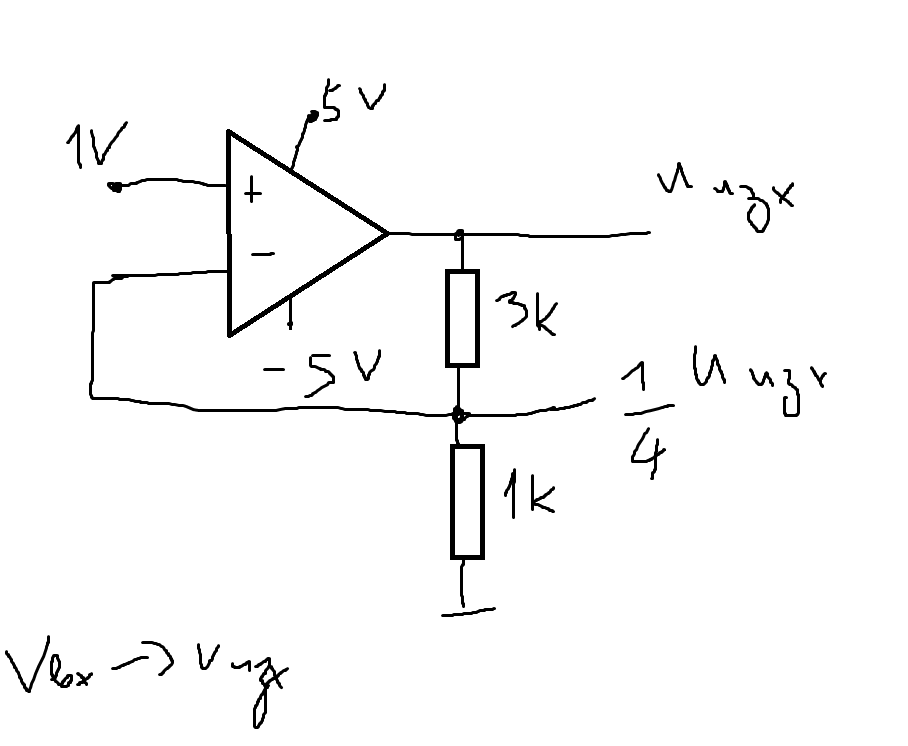 5 V
1V
+
U изх
−
3k
- 5 V
1/4 U изх
1k
Vвх -> Vизх